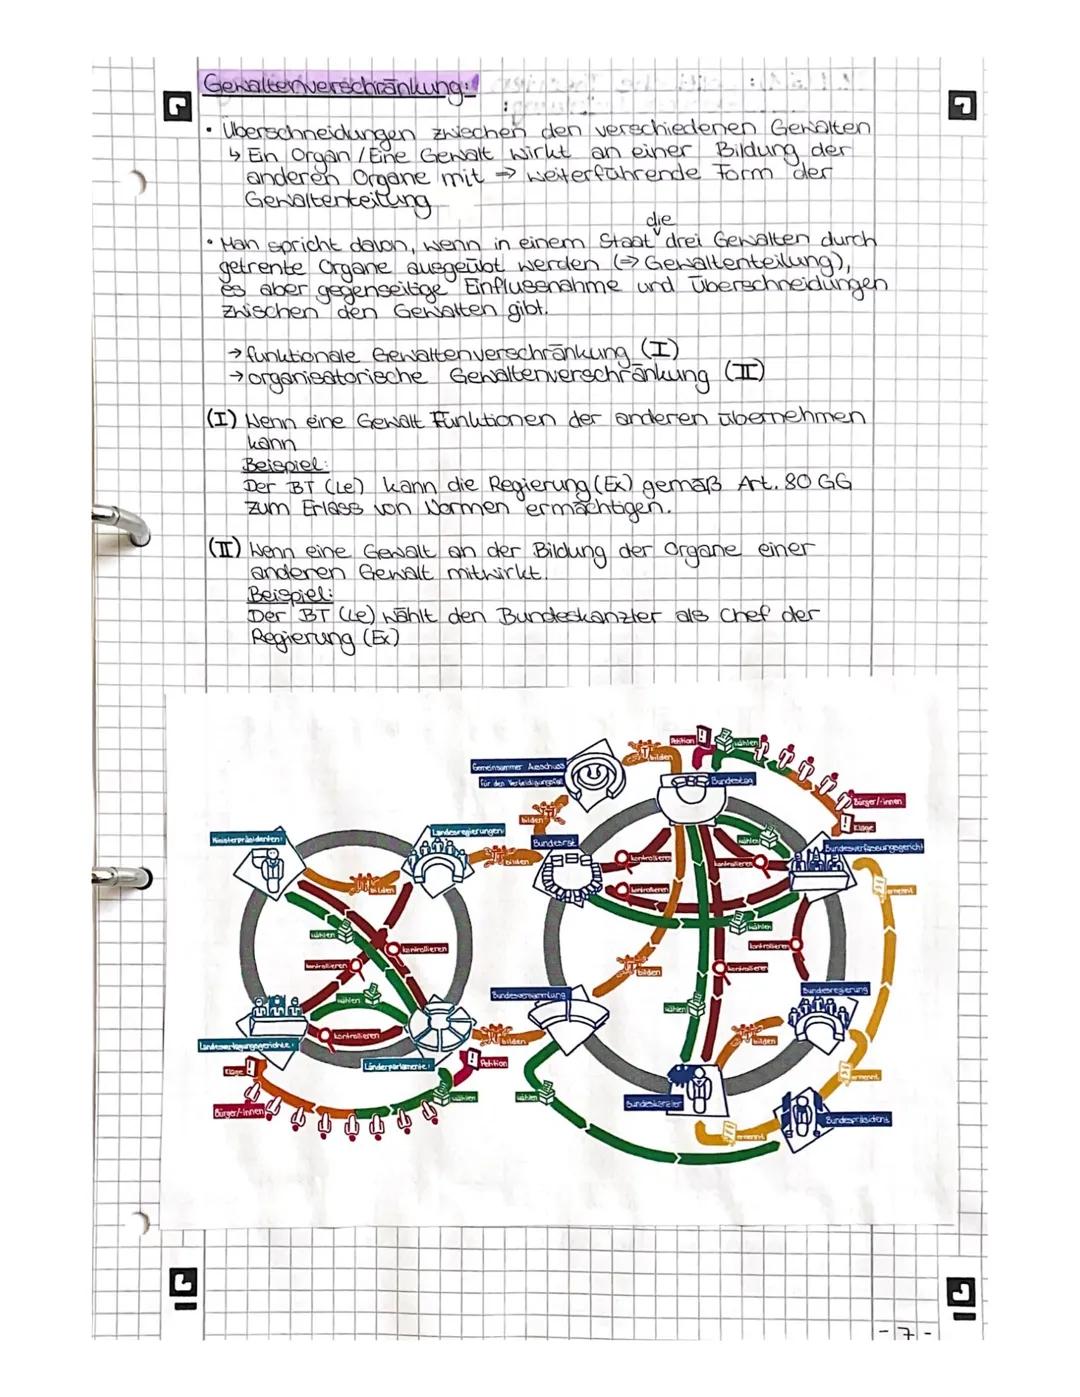 Gewaltenverschränkung:
• Überschneidungen zwischen den verschiedenen Gewalten
↳ Ein Organ / Eine Gewalt wirkt an einer Bildung der
anderen Organe mit ⇒ weiterführende Form der
Gewaltenteilung
die
• Man spricht davon, wenn in einem Staat drei Gewalten durch
getrente Organe ausgeübt werden (⇒ Gewaltenteilung),
es aber gegenseitige Einflussnahme und Überschneidungen
zwischen den Gewalten gibt.
→ funktionale Gewaltenverschränkung (I)
→ organisatorische Gewaltenverschränkung (II)
(I) Wenn eine Gewalt Funktionen der anderen übernehmen
kann
Beispiel:
Der BT (Le) kann die Regierung (Ex) gemäß Art. 80 GG
zum Erlass von Normen ermächtigen.
(II) Wenn eine Gewalt an der Bildung der Organe einer
anderen Gewalt mitwirkt.
Beispiel:
Der BT (Le) wählt den Bundeskanzler als Chef der
Regierung (Ex)
Petition
wählen
bilden
Gemeinsamer Ausschuss
für den Verteidigungsfall
Bundestag
Bürger/-innen
Klage
bilden
Ministerpräsidenten
Landesregierungen
Bundesrat
wählen
Bundesverfassungsgericht
bilden
kontrollieren
kontrollieren
bilden
kontrollieren
ernennt
wählen
wählen
kontrollieren
kontrollieren
kontrollieren
kontrollieren
bilden
Bundesversammlung
Bundesregierung
wählen
wählen
kontrollieren
bilden
bilden
Landesverfassungsgerichte
Länderparlamente
Petition
Klage
ernennt
wählen
wählen
Bundeskanzler
Bürger/-innen
Bundespräsident
ernennt
- 7 -